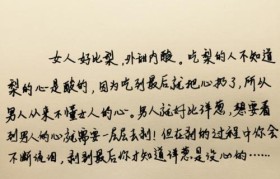 女人好比梨，外甜内酸。吃梨的人不知道
梨的心是酸的，因为吃到最后就把心扔了，所以
男人从来不懂女人的心。男人就好比洋葱，想要看
到男人的心就需要一层层去剥！但在剥的过程中你会
不断流泪，剥到最后你才知道洋葱是没心的……